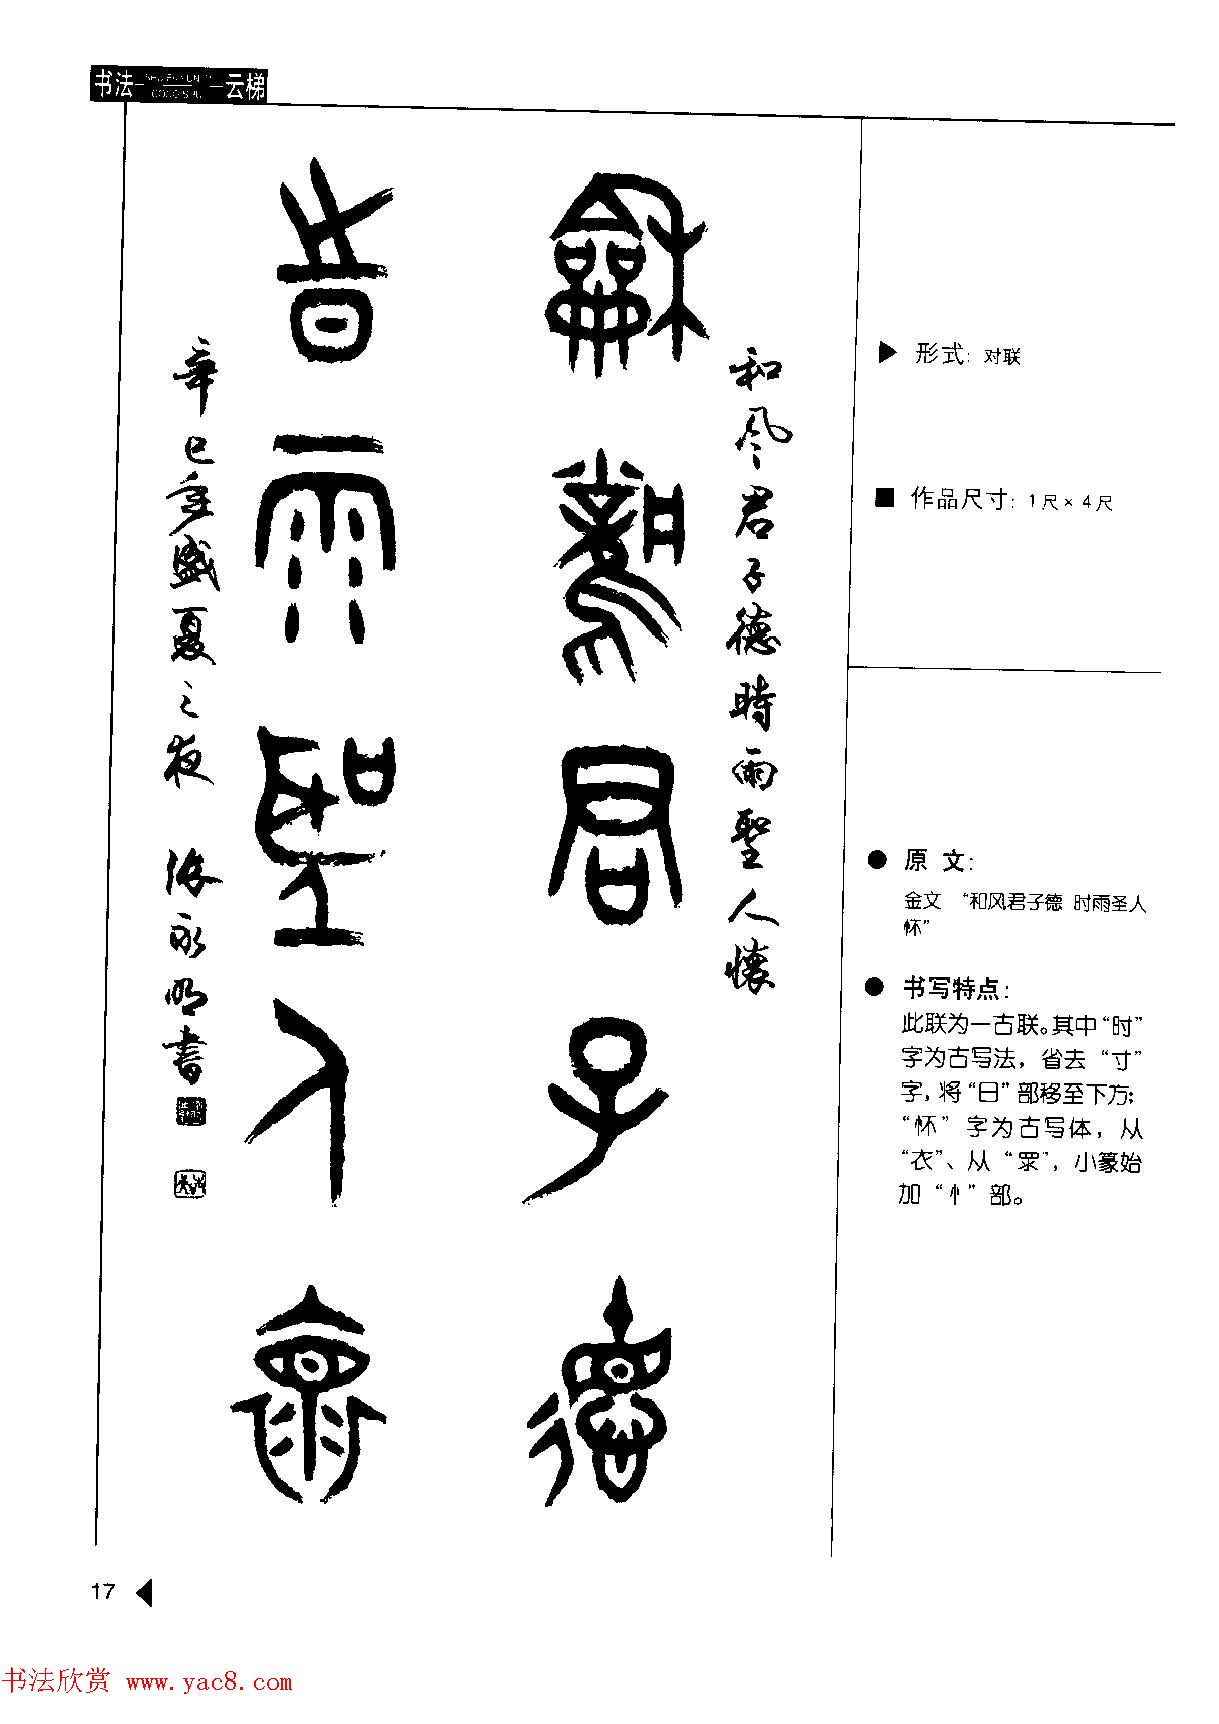 书法 云梯
和風君子德時雨聖人懷
龢 君子德
時雨聖人懷
辛巳年盛夏之夜 张永明書
形式：对联
作品尺寸：1尺×4尺
原 文：
金文 “和风君子德 时雨圣人
怀”
书写特点：
此联为一古联。其中“时”
字为古写法，省去“寸”
字，将“日”部移至下方；
“怀”字为古写体，从
“衣”、从“眔”，小篆始
加“忄”部。
17
书法欣赏 www.yac8.com